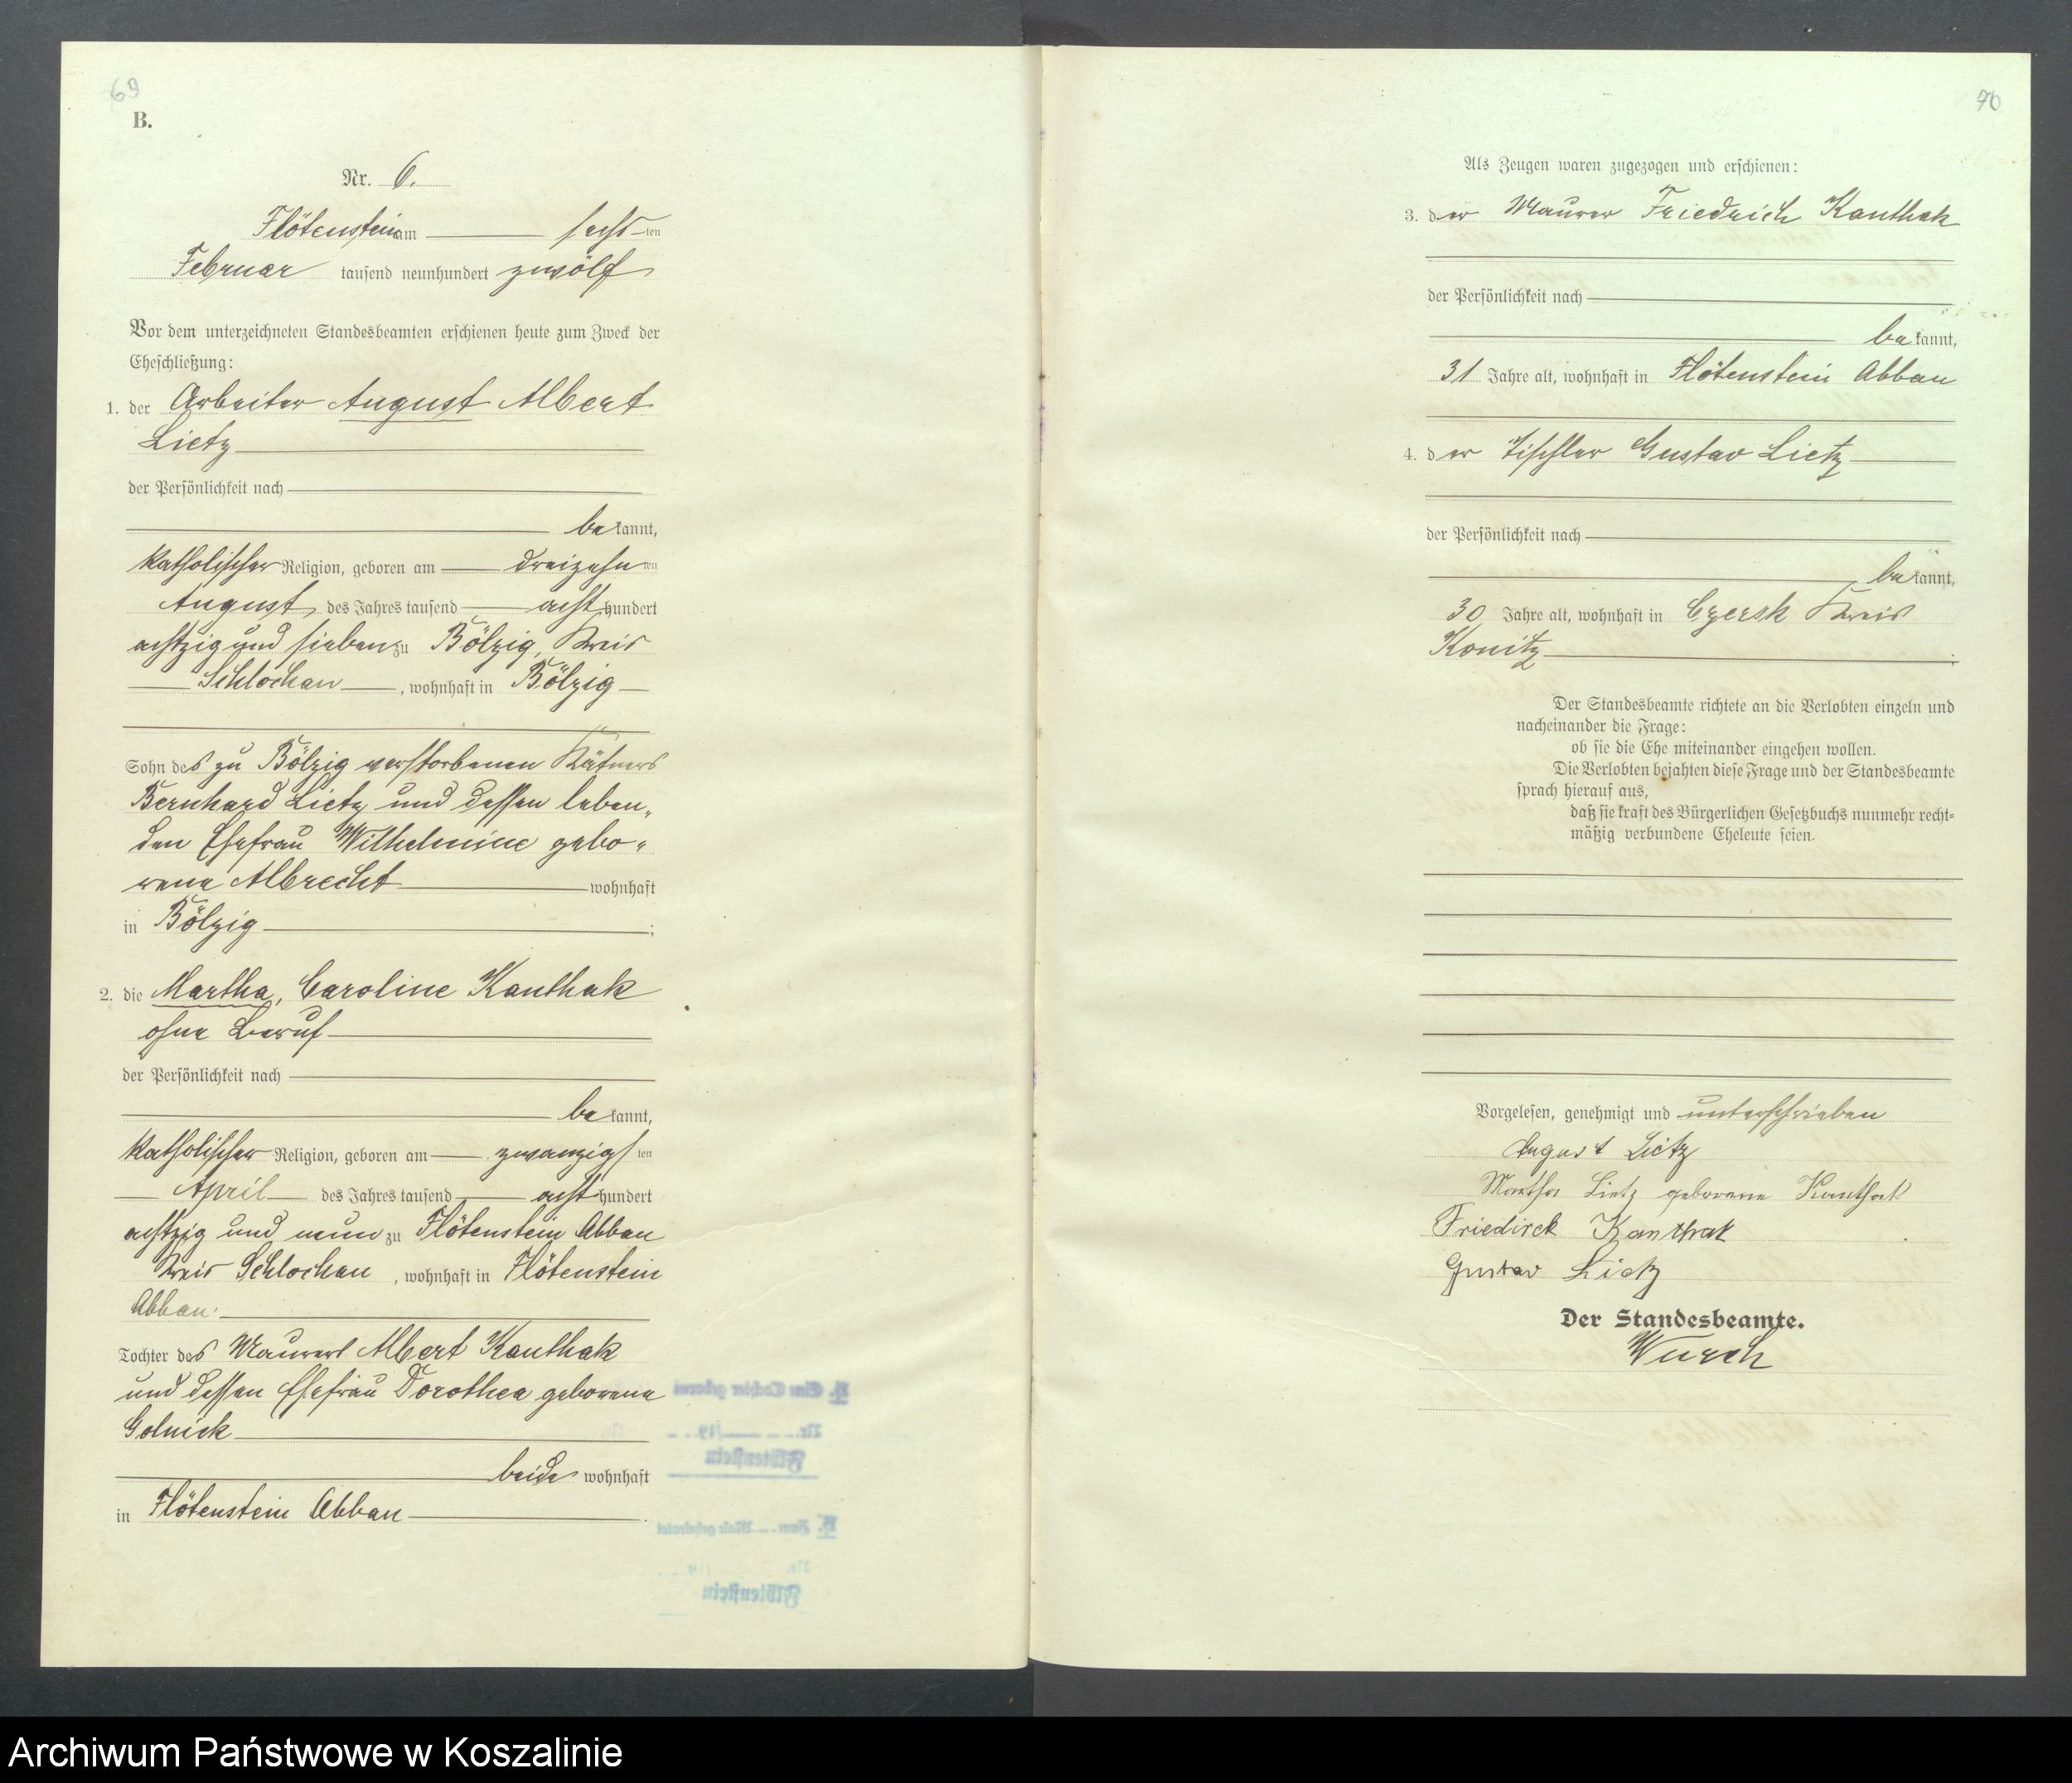 69
B.
Nr. 6.
Flötenstein am sechsten
Februar tausend neunhundert zwölf
Vor dem unterzeichneten Standesbeamten erschienen heute zum Zweck der
Eheschließung:
1. der Arbeiter August Albert
Lietz
der Persönlichkeit nach
bekannt,
katholischer Religion, geboren am dreizehnten
August des Jahres tausend achthundert
achtzig und sieben zu Bölzig, Kreis
Schlochau, wohnhaft in Bölzig
Sohn des zu Bölzig verstorbenen Kätners
Bernhard Lietz und dessen leben„
den Ehefrau Wilhelmine gebo„
rene Albrecht wohnhaft
in Bölzig;
2. die Martha, Caroline Kanthak
ohne Beruf
der Persönlichkeit nach
bekannt,
katholischer Religion, geboren am zwanzigsten
April des Jahres tausend achthundert
achtzig und neun zu Flötenstein Abbau
Kreis Schlochau, wohnhaft in Flötenstein
Abbau.
Tochter des Maurers Albert Kanthak
und dessen Ehefrau Dorothea geborene
Golnick
beide wohnhaft
in Flötenstein Abbau.
H. Eine Tochter geboren
Nr. /19
Flötenstein
H. Zum Male geheiratet
Nr. /19
Flötenstein
70
Als Zeugen waren zugezogen und erschienen:
3. der Maurer Friedrich Kanthak
der Persönlichkeit nach
bekannt,
31 Jahre alt, wohnhaft in Flötenstein Abbau
4. der Tischler Gustav Lietz
der Persönlichkeit nach
bekannt,
30 Jahre alt, wohnhaft in Czersk Kreis
Konitz.
Der Standesbeamte richtete an die Verlobten einzeln und
nacheinander die Frage:
ob sie die Ehe miteinander eingehen wollen.
Die Verlobten bejahten diese Frage und der Standesbeamte
sprach hierauf aus,
daß sie kraft des Bürgerlichen Gesetzbuchs nunmehr recht-
mäßig verbundene Eheleute seien.
Vorgelesen, genehmigt und unterschrieben
August Lietz
Martha Lietz geborene Kanthak
Friedirck Kanthak
Gustav Lietz
Der Standesbeamte.
Wursch
Archiwum Państwowe w Koszalinie